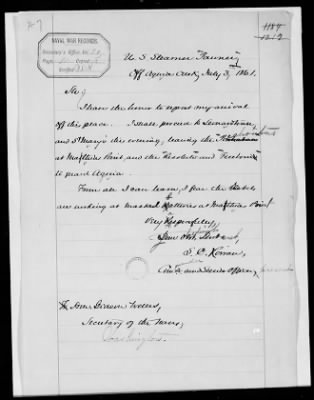 NAVAL WAR RECORDS
Secretary's Office
U. S. Steamer Pawnee
Off Aquia Creek, July 3, 1861.
Sir,
I have the honor to report my arrival
off this place. I shall proceed to Leonardtown
and St Mary's this evening, leaving the
at Mathias Point, and the Resolute and Freeborn
to guard Aquia.
From all I can learn, I fear the Rebels
are working at masked batteries at Mathias Point
Very Respectfully,
Your Obt. Servant,
S. C. Rowan,
Comdr and Senior Officer, present
The Hon Gideon Welles,
Secretary of the Navy,
Washington.